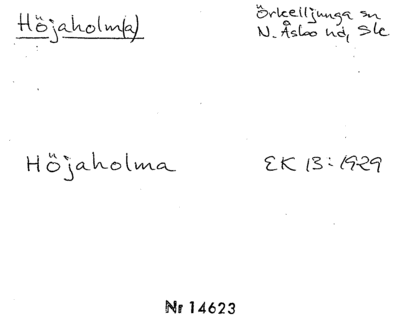 Höjaholm(a)
Örkelljunga sn
N. Åsbo hd, Sk
Höjaholma
EK 13:1929
Nr 14623